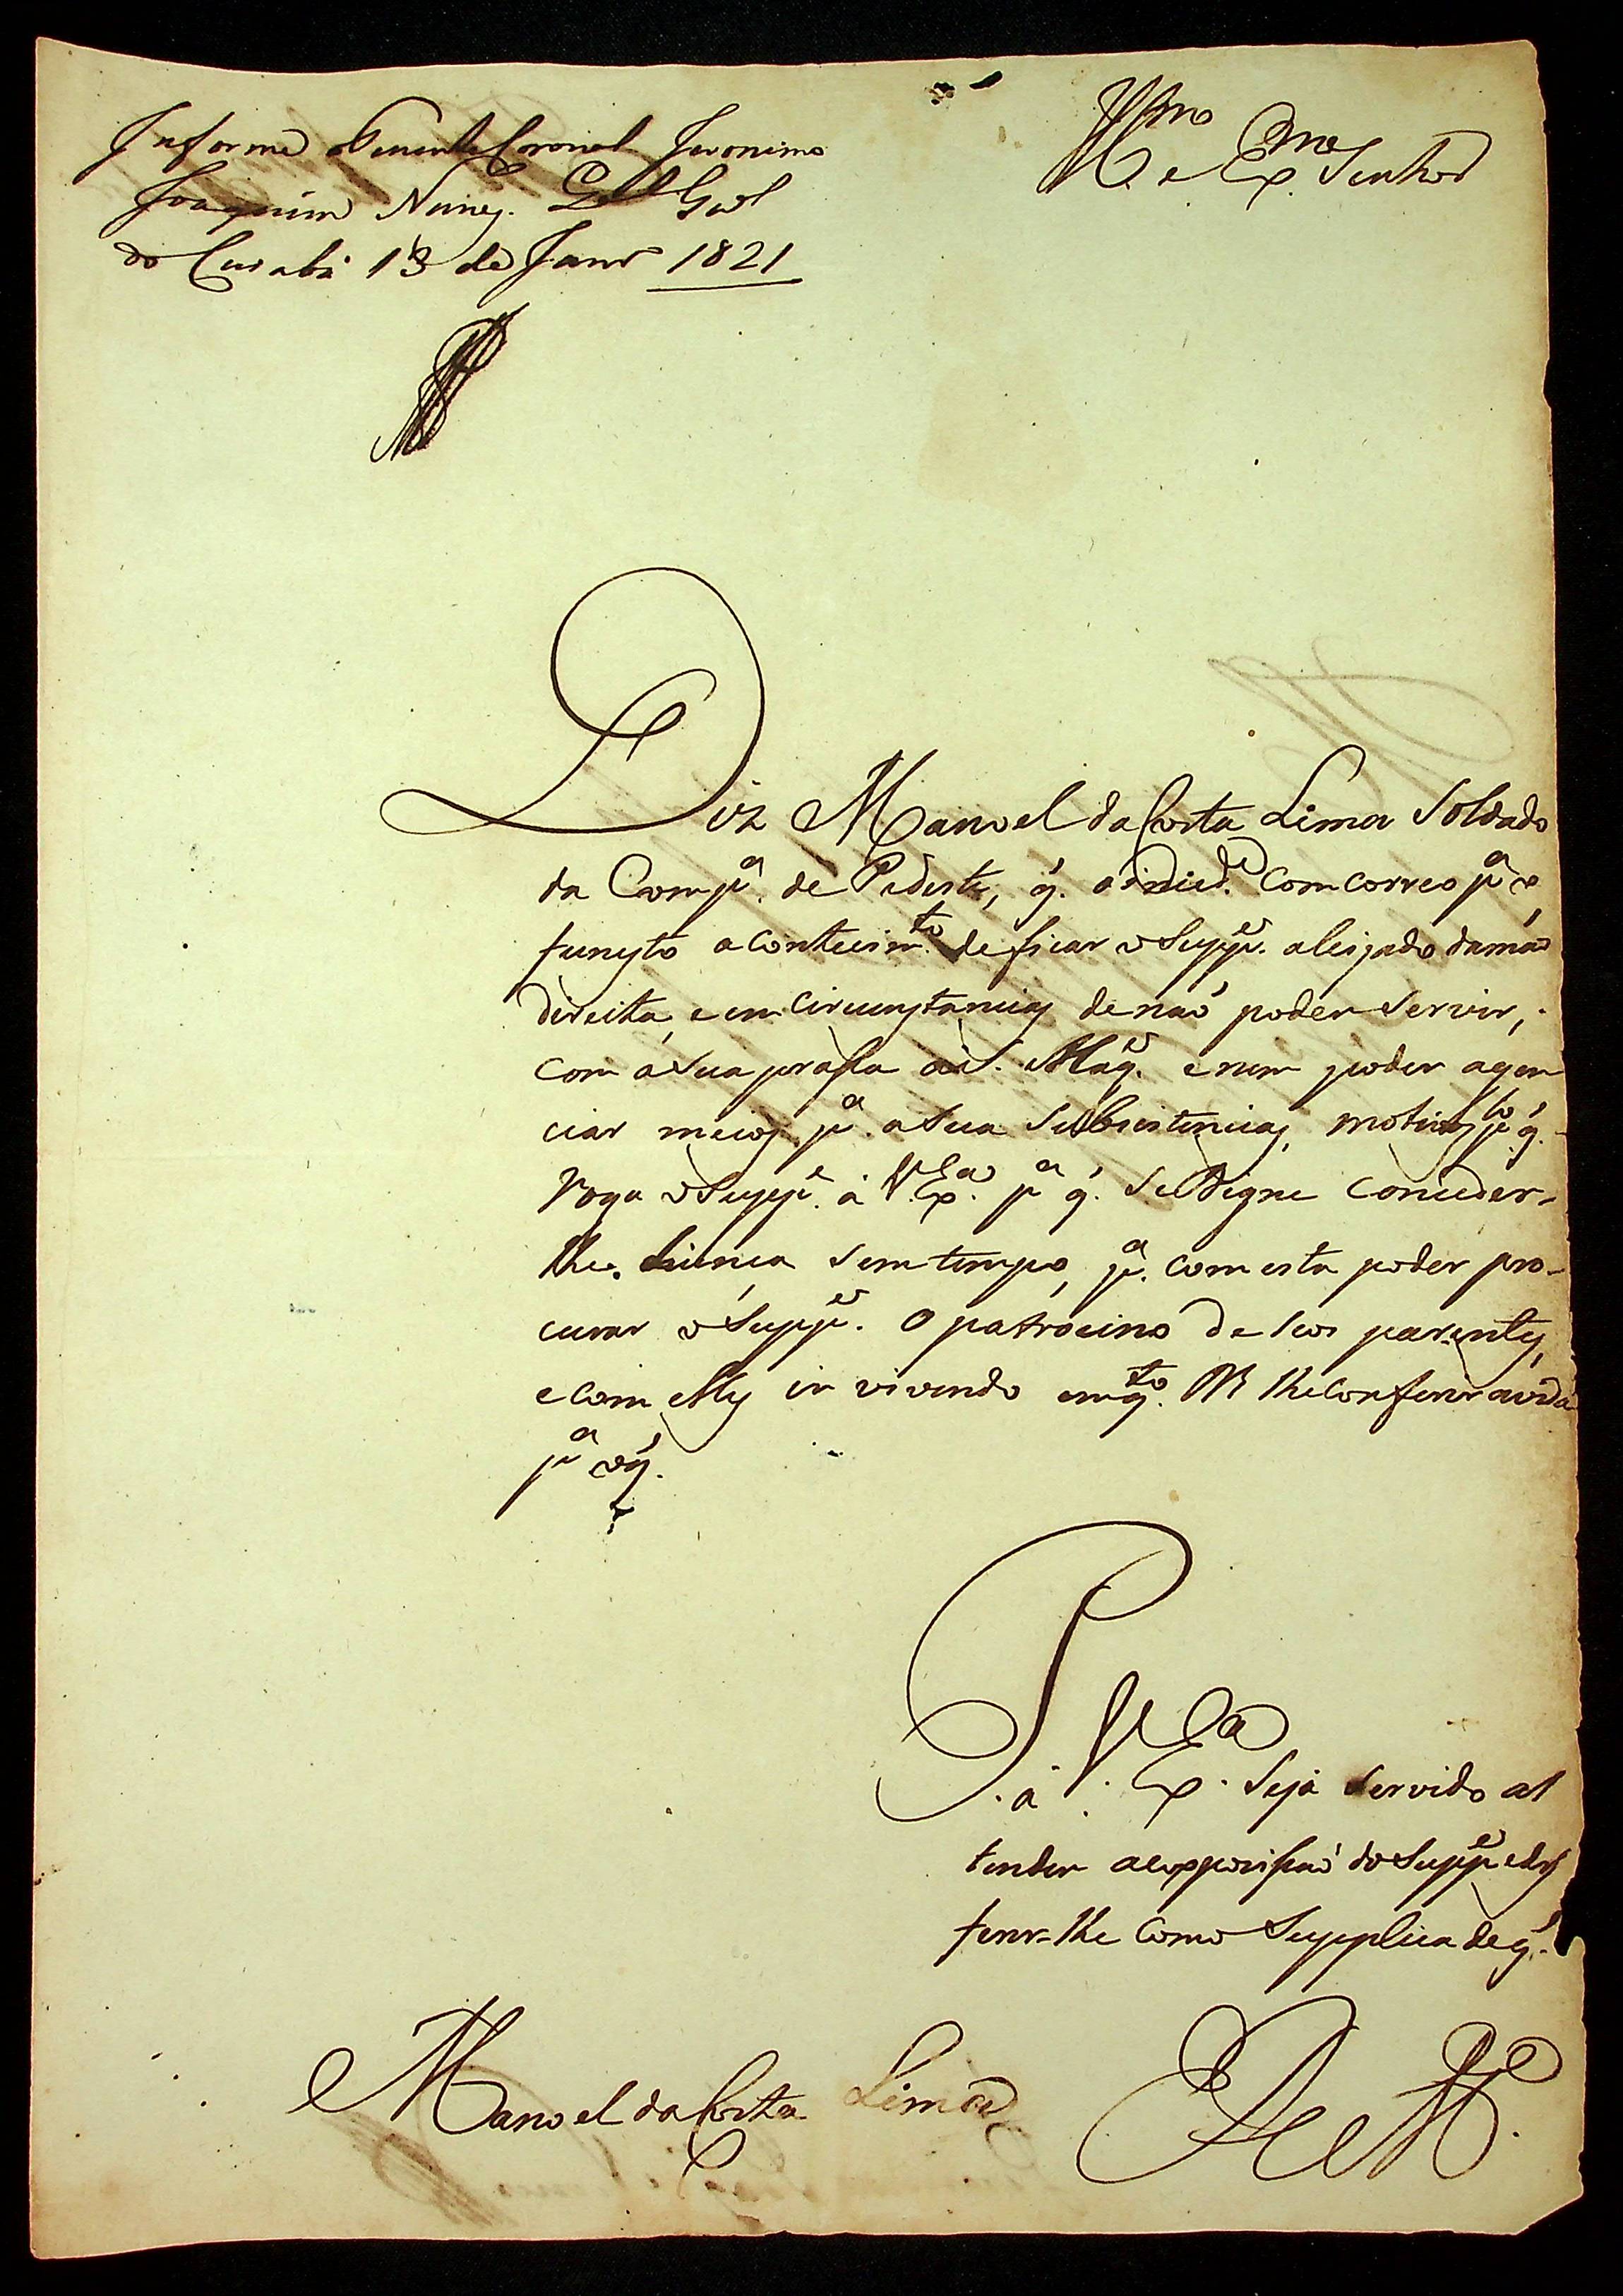 Informe o Tenente Coronel Jeronimo
Joaquim Nunes. Qel Gal
do Cuiabá 13 de Janro 1821
Illmo e Exmo Senhor
Diz Manoel da Costa Lima Soldado
da Compa. de Pedestes, q. com correo pa o
funesto acontecimto. de ficar o Suppe. aleijado damaõ
direita, e em circunstancias de naõ poder servir,
com á sua prassa a S. Mage. e nem poder agen
ciar meios pa. a sua Subsistencias, motivos pto q.
roga o Suppe. á V. Exa. pa q. se digne conceder-
lhe. licença sem tempo, pa. com esta poder pro-
curar o Suppe. O patrocino de seos parentes,
e com elles ir vivendo emqto. D's lhe conferir avida
pa oq.
P. á V. Exa. Seja servido at
tender aexposissaõ do Suppe e def
ferir-lhe como Supplica de q.
Manoel da Costa Lima
E R Mce.